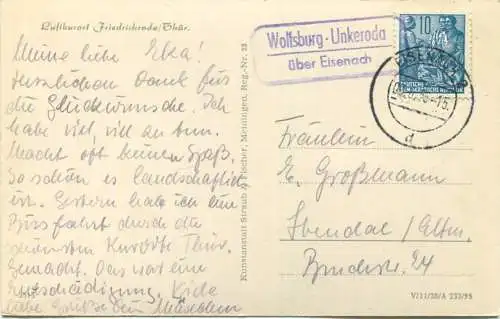 Luftkurort Friedrichroda/Thür.
Meine liebe Elka!
Herzlichen Dank für
die Glückwünsche. Ich
habe viel, viel an tun.
Macht oft keinen Spaß.
So schön es landschaftlich
ist. Gestern hab ich eine
Busfahrt durch die
schönsten Kurorte Thür.
gemacht. Das war eine
Entschädigung. Viele
liebe Grüße Dein
Kunstanstalt Straub & Fischer, Meiningen, Reg.-Nr. 23
Wolfsburg-Unkeroda
über Eisenach
10
EISENACH
d
DEUTSCHE
DEMOKRATISCHE REPUBLIK
Fräulein
E. Großmann
Stendal / Altm.
Bruchstr. 24
V/11/28/A 233/55